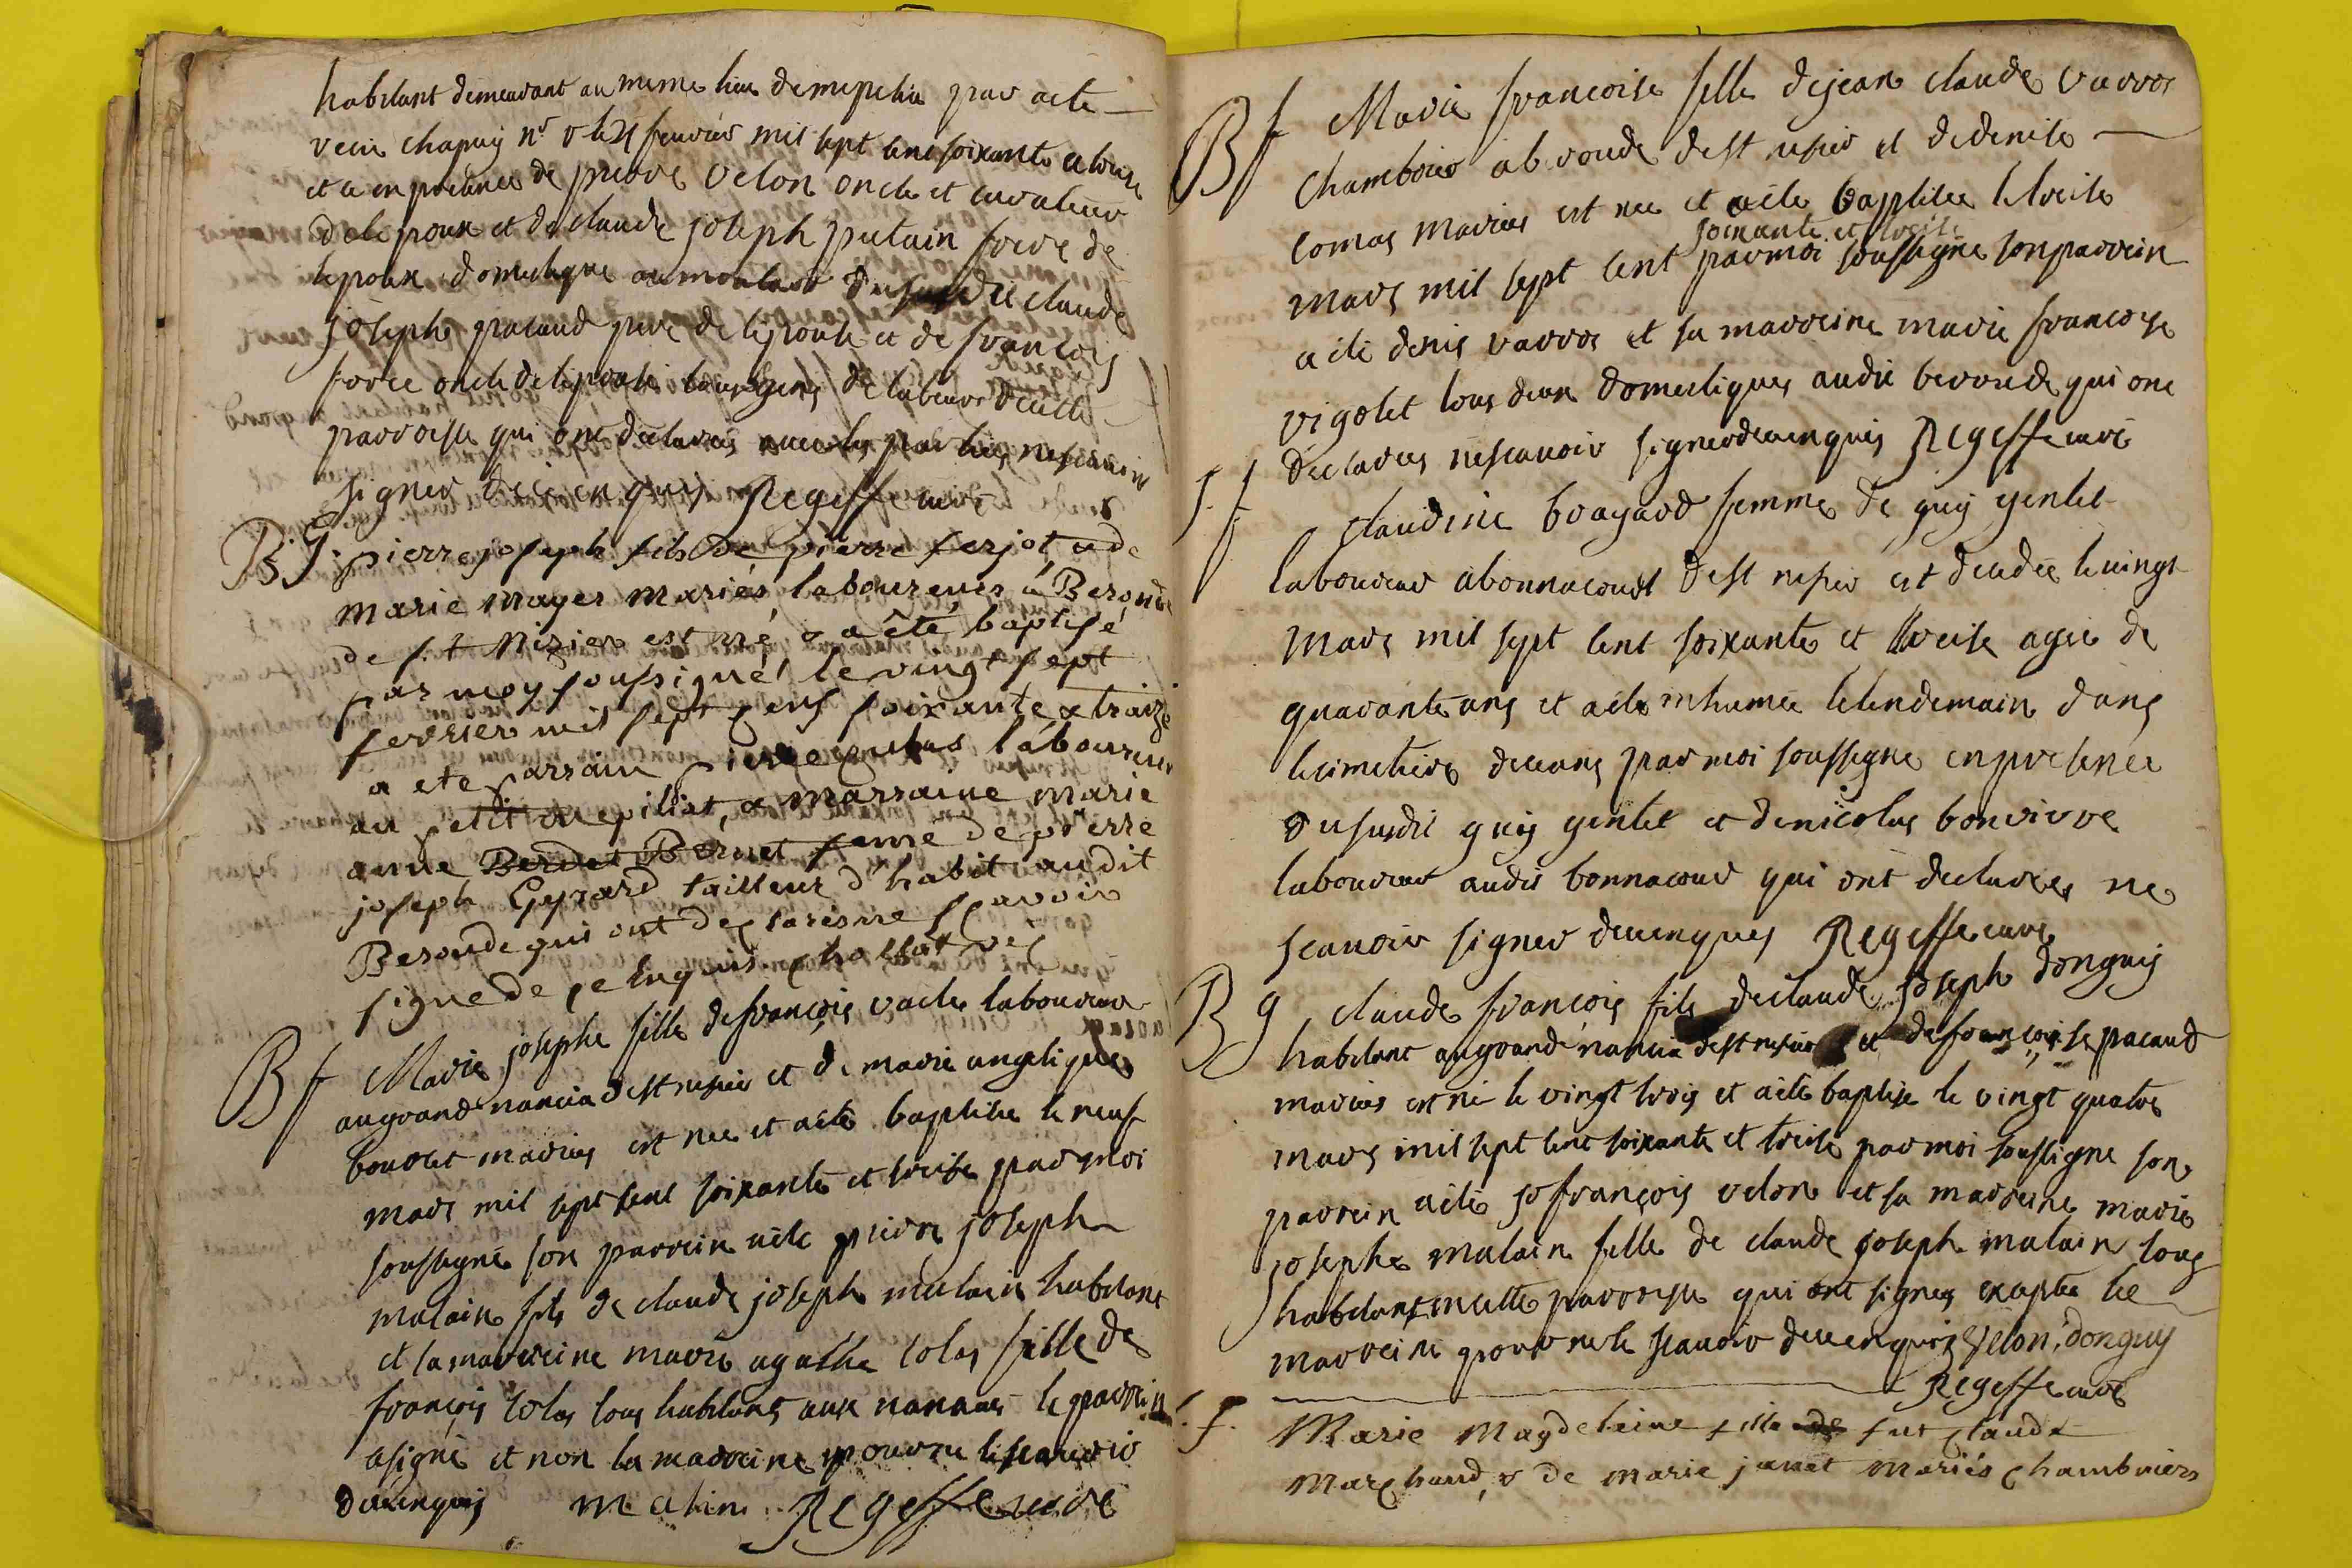 habitant demeurant au meme lieu de mepilia par acte
recu chapuy nre le 21 feuvrier mil sept cent soixante et treise
et a en presence de pierre velon oncle et curateur
de lepoux et de claude joseph putain frere de
lepoux domestique au moutare du susdit claude
joseph pacaud pere de lepouse et de francois
force oncle de lepouse tous gens de labeur de cette
parroisse qui ont declarés avec les parties ne scavoir
signer dece enquis Regeffe curé
B. g. pierre joseph fils de pierre ferjot, & de
marie mayer mariés laboureurs à Beronde
de s.t Nizier est né & a été baptisé
par moy soussigné le vingt sept
fevrier mil sept cent soixante & traize
a ete parrain pierre cubas laboureur
au petit mepillat, & marraine marie
anne Berdet Bernet feme de pierre
joseph Gyrard tailleur d'habit audit
Beronde qui ont declarés ne scavoir
signe de ce enquis chattot vic
B f Marie josephe fille de françois vacle laboureur
au grand nancia de st nizier et de marie angelique
bourlet mariés est nee et a été baptisée le neuf
mars mil sept cent soixante et treise par moi
soussigné son parrein a été pierre joseph
matain fils de claude joseph matain habitant
et la marreine marie agathe colas fille de
françois colas tous habitans aux nancias le parrein
a signé et non la marreine pour ne le scauvoir
de ce enquis matin Regeffe curé
B f Marie francoise fille de jean claude varros
chambrier a beronde de st nisier et de denise
comas mariés est nee et a été baptisée le treise
soixante et treise
mars mil sept cent par moi soussigné son parrein
a été denis varros et sa marreine marie francoise
vigolet tous deux domestiques audit beronde qui ont
declarés ne scauoir signer de ce enquis Regeffe curé
S. f claudine bragard femme de guy gentet
laboureur a bonnacourt de st nisier est decedée le vingt
mars mil sept cent soixante et treise agée de
quarante ans et a été inhumée le lendemain dans
le cimetiere de ceans par moi soussigné en presence
du susdit guy gentet et de nicolas bonvivre
laboureur audit bonnacour qui ont declarés ne
scauoir signer de ce enquis Regeffe curé
B g claude francois fils de claude joseph donguy
habitant au grand nancia de st nisier et de francoise pacaud
mariés est né le vingt trois et a été baptisé le vingt quatre
mars mil sept cent soixante et treise par moi soussigné son
parrein a été françois velon et sa marreine marie
josephe matain fille de claude joseph matain tous
habitant en cette parroisse qui ont signés excepté la
marreine pour ne le scauoir de ce enquis Velon, donguy
Regeffe curé
f. Marie Magdeleine fille de fut claude
Marchand, & de marie janet mariés chambriers